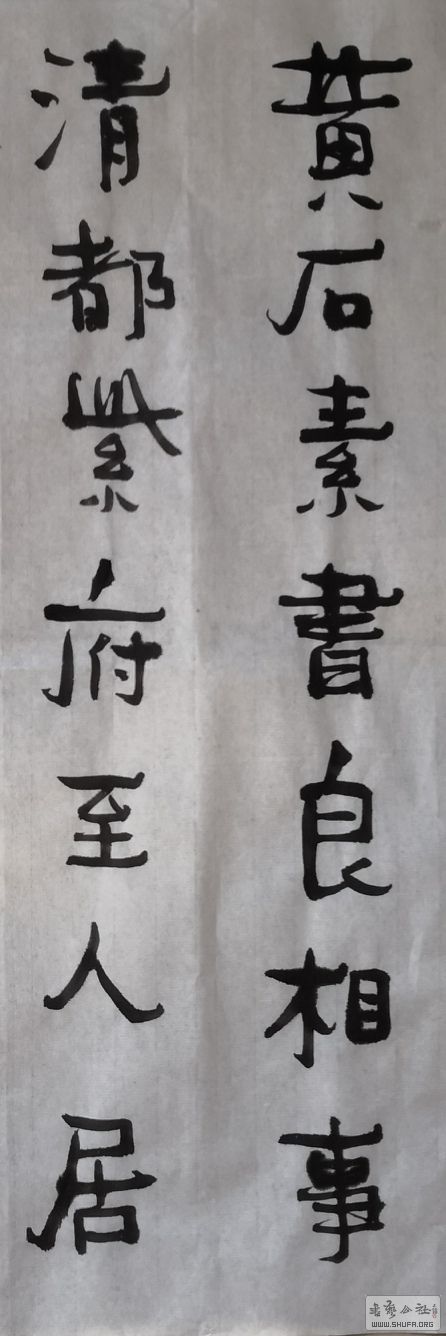 黄石素書良相事
清都紫府至人居
書藝公社
WWW.SHUFA.ORG